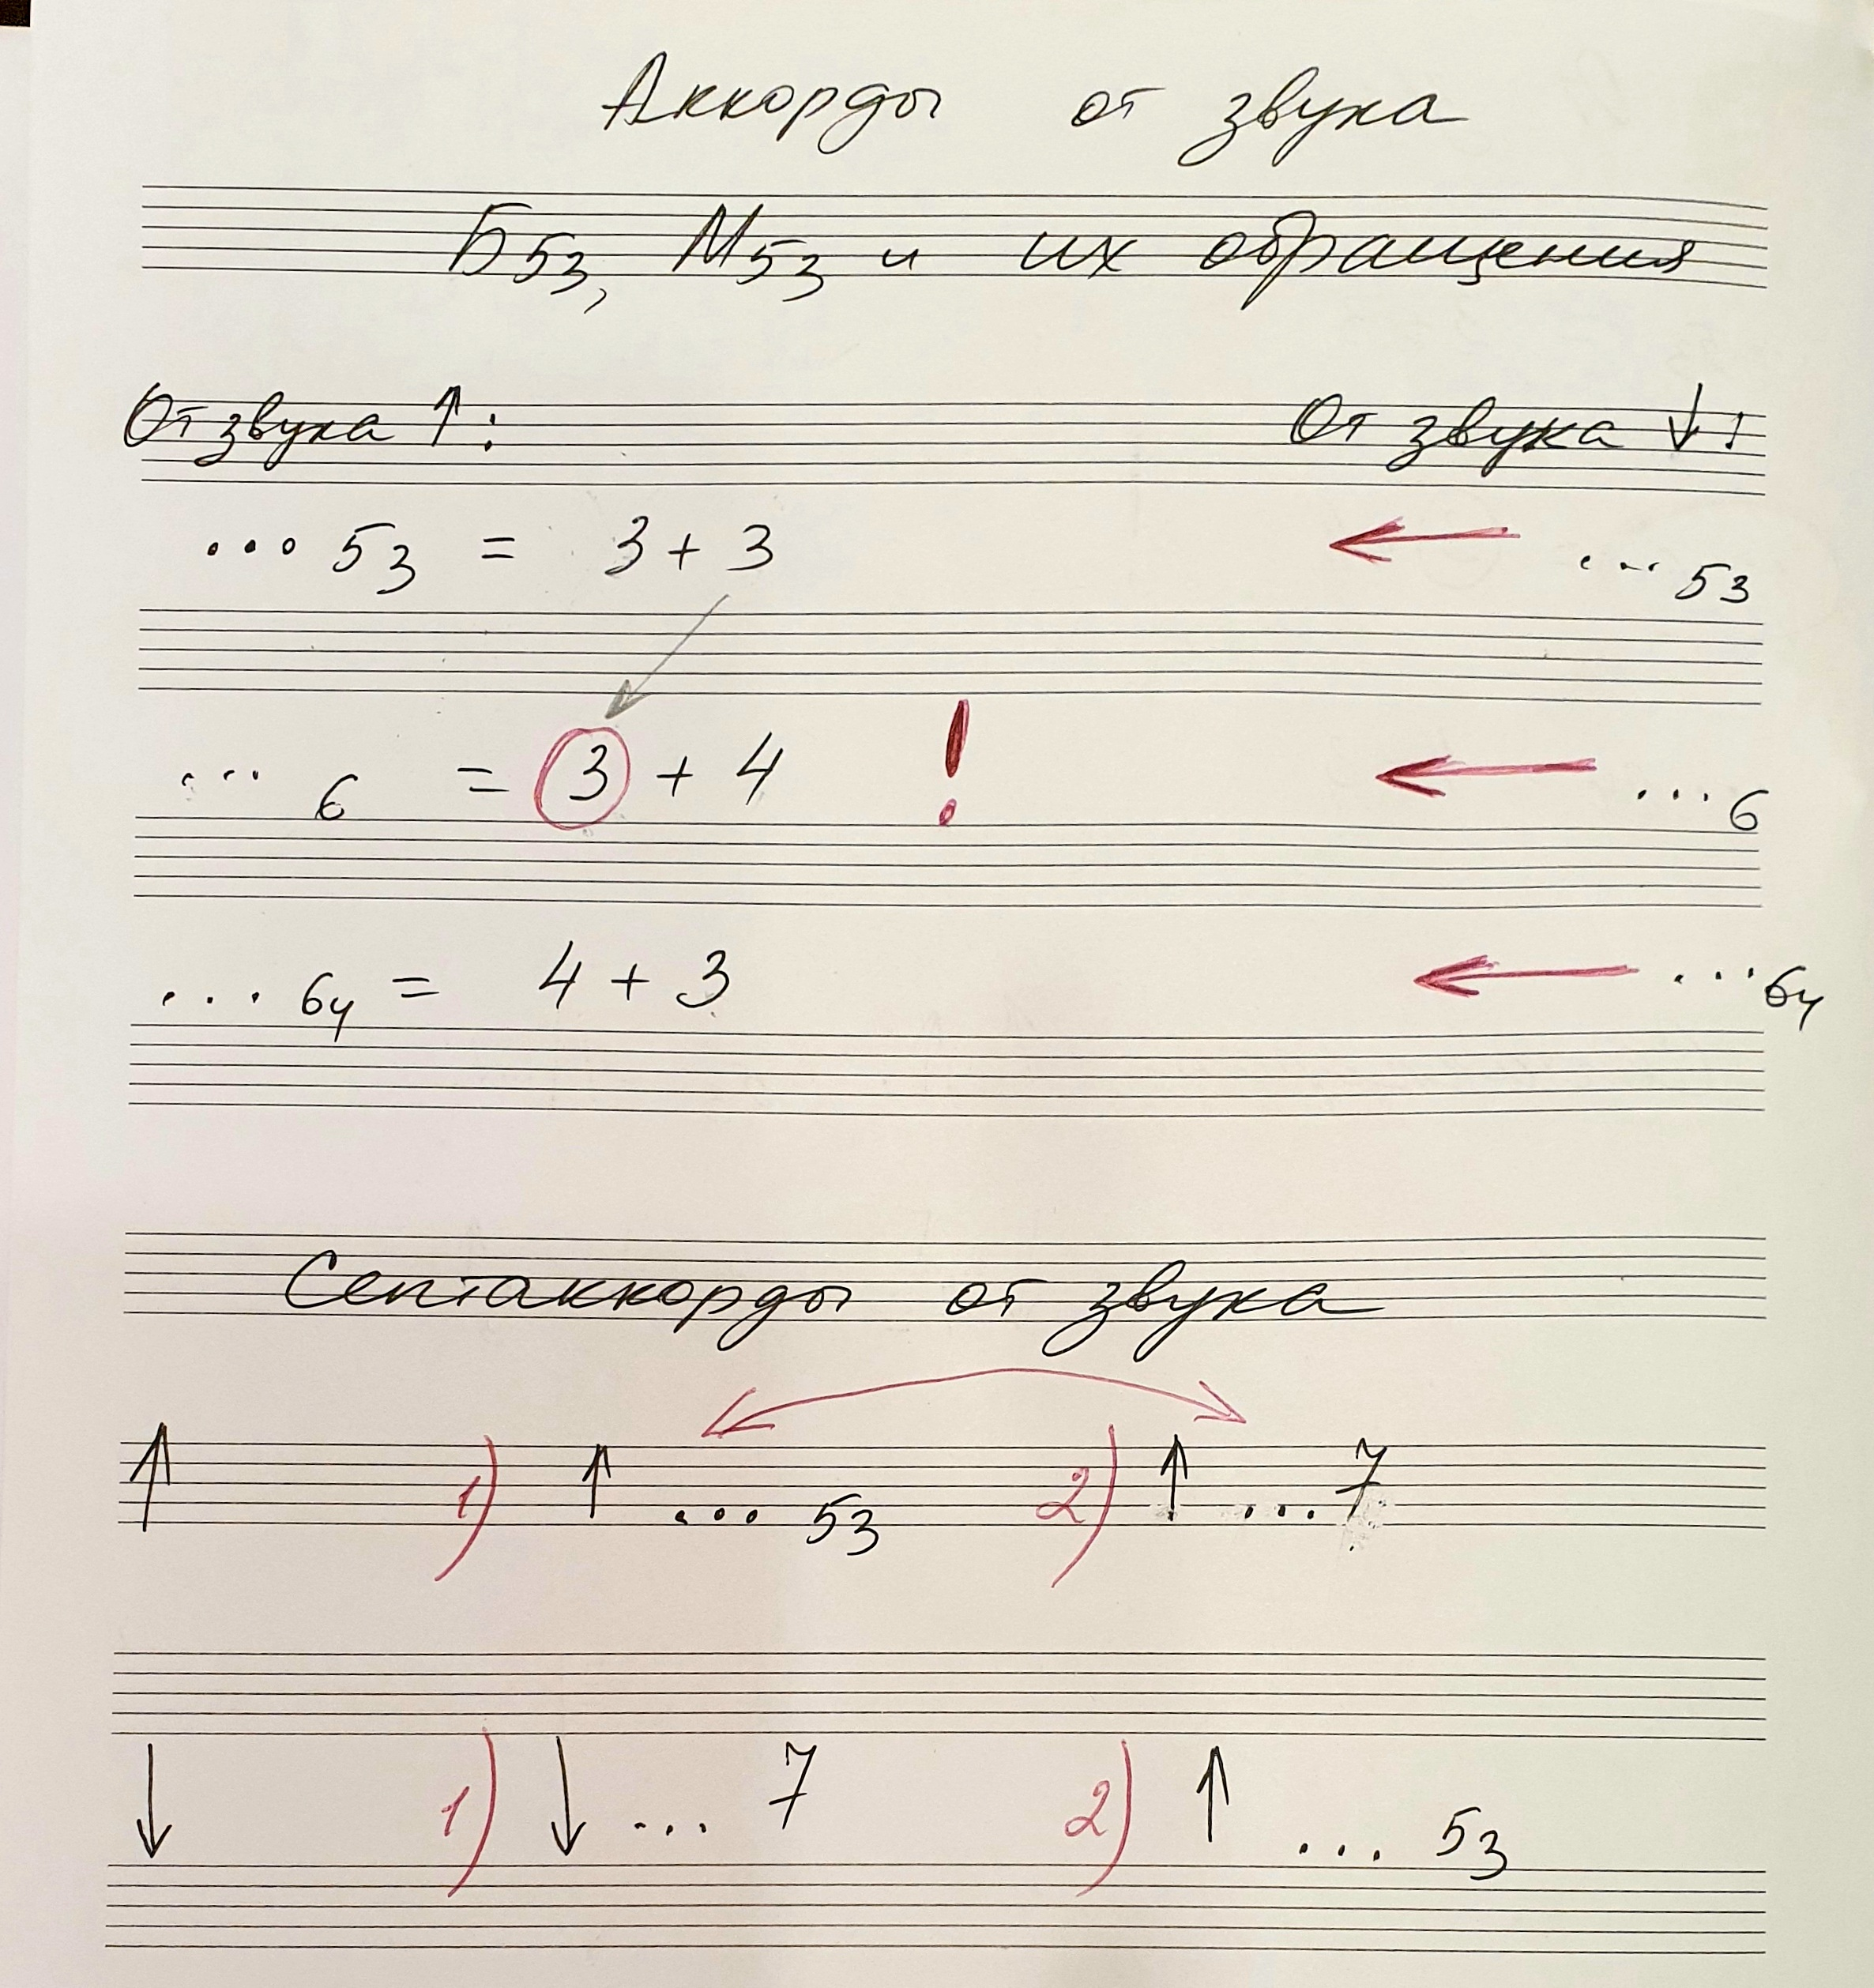 Аккорды от звука
Б53, М53 и их обращения
От звука ↑: От звука ↓:
... 53 = 3 + 3 ← ... 53
... 6 = 3 + 4 ! ← ... 6
... 64 = 4 + 3 ← ... 64
Септаккорды от звука
↑ 1) ↑ ... 53 2) ↑ ... 7
↓ 1) ↓ ... 7 2) ↑ ... 53